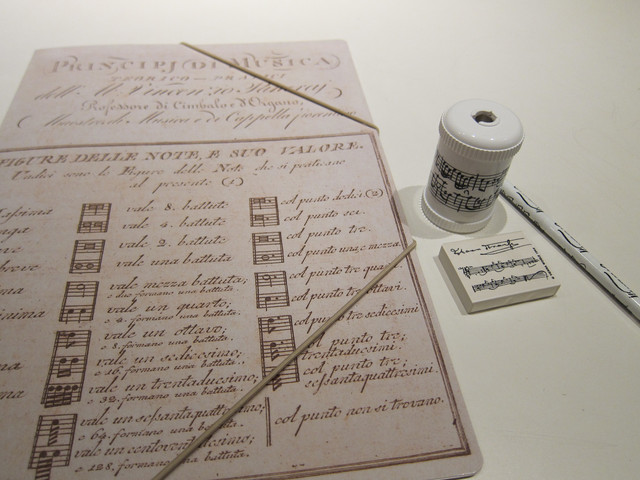 PRINCIPJ DI MUSICA
TEORICO-PRATICI
dell' M. Vincenzo
Professore di Cimbalo e d'Organo,
Maestro di Musica e di Cappella
FIGURE DELLE NOTE, E SUO VALORE.
Undici sono le Figure delle Note che si praticano
al presente (1)
vale 8. battute col punto dodici (2)
vale 4. battute col punto sei.
vale 2. battute col punto tre.
breve vale una battuta col punto una, e mezza.
vale mezza battuta; col punto tre quar
e due formano una battuta.
vale un quarto; col punto tre ottavi.
e 4. formano una battuta.
vale un ottavo; col punto tre sediccimi
e 8. formano una battuta.
vale un sediccsimo; col punto tre
e 16. formano una battuta. trentaduesimi
vale un trentaducsimo; col punto tre;
e 32. formano una battuta. sessantaquattresimi
vale un sessantaquattresimo; col punto non si trovano.
e 64. formano una battuta.
vale un centoventottesimo;
e 128. formano una battuta.